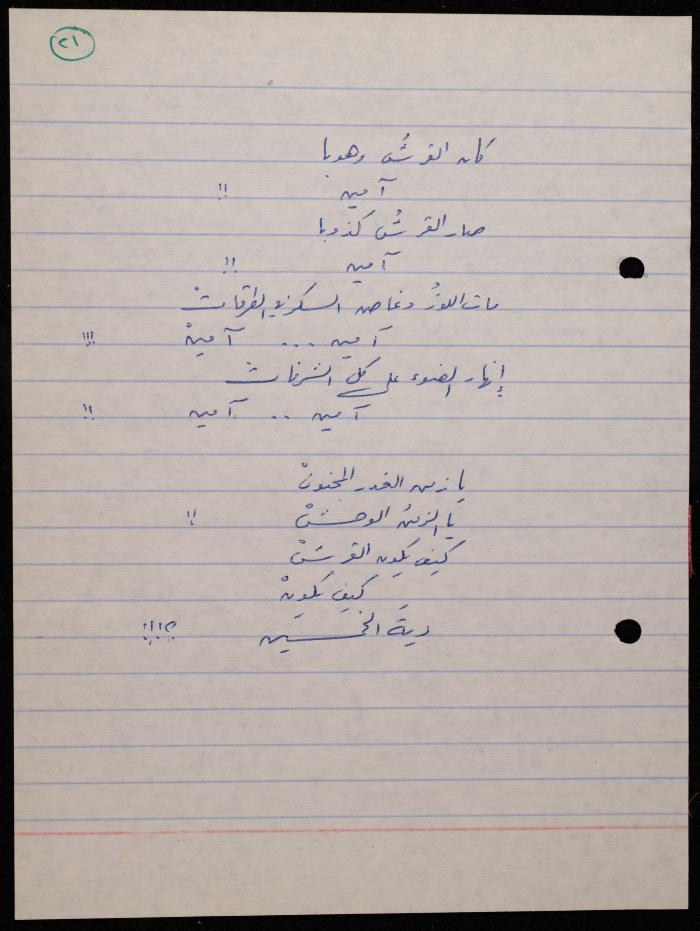 ٢١
كان القرشُ وهوبا
آمين !!
صار القرشُ كذوبا
آمين !!
مات اللوزُ وغاص السكر في الطرقاتْ
آمين ... آمينْ !!!
إنهار الضوء على كل الشرفات
آمين .. آمين !!
يا زمن الغدر المجنونْ
يا الزمنُ الوحشْ !!
كيف يكون القرشْ
كيف يكونْ
ديةَ الخمسين ؟!!!!